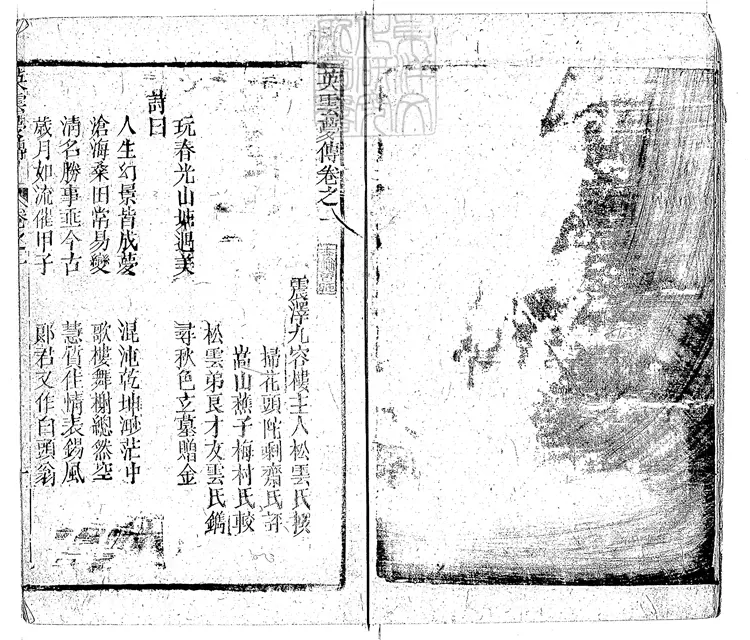 英雲夢傳卷之一
震澤九容樓主人松雲氏撰
掃花頭陀剩齋氏評
嵩山樵子梅村氏較
松雲弟良才友雲氏鐫
玩春光山塘遇美
尋秋色立墓贈金
詩曰
人生幻景皆成夢
混沌乾坤渺茫中
滄海桑田常易變
歌樓舞榭總然空
清名勝事垂今古
慧質佳情表錫風
歲月如流催甲子
郎君又作白頭翁
英雲夢傳
卷之一